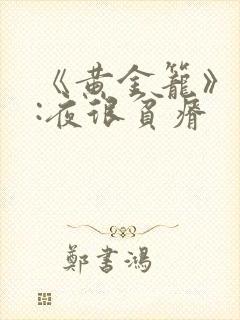 《黄金籠》
:夜很貧瘠
鄭書鴻